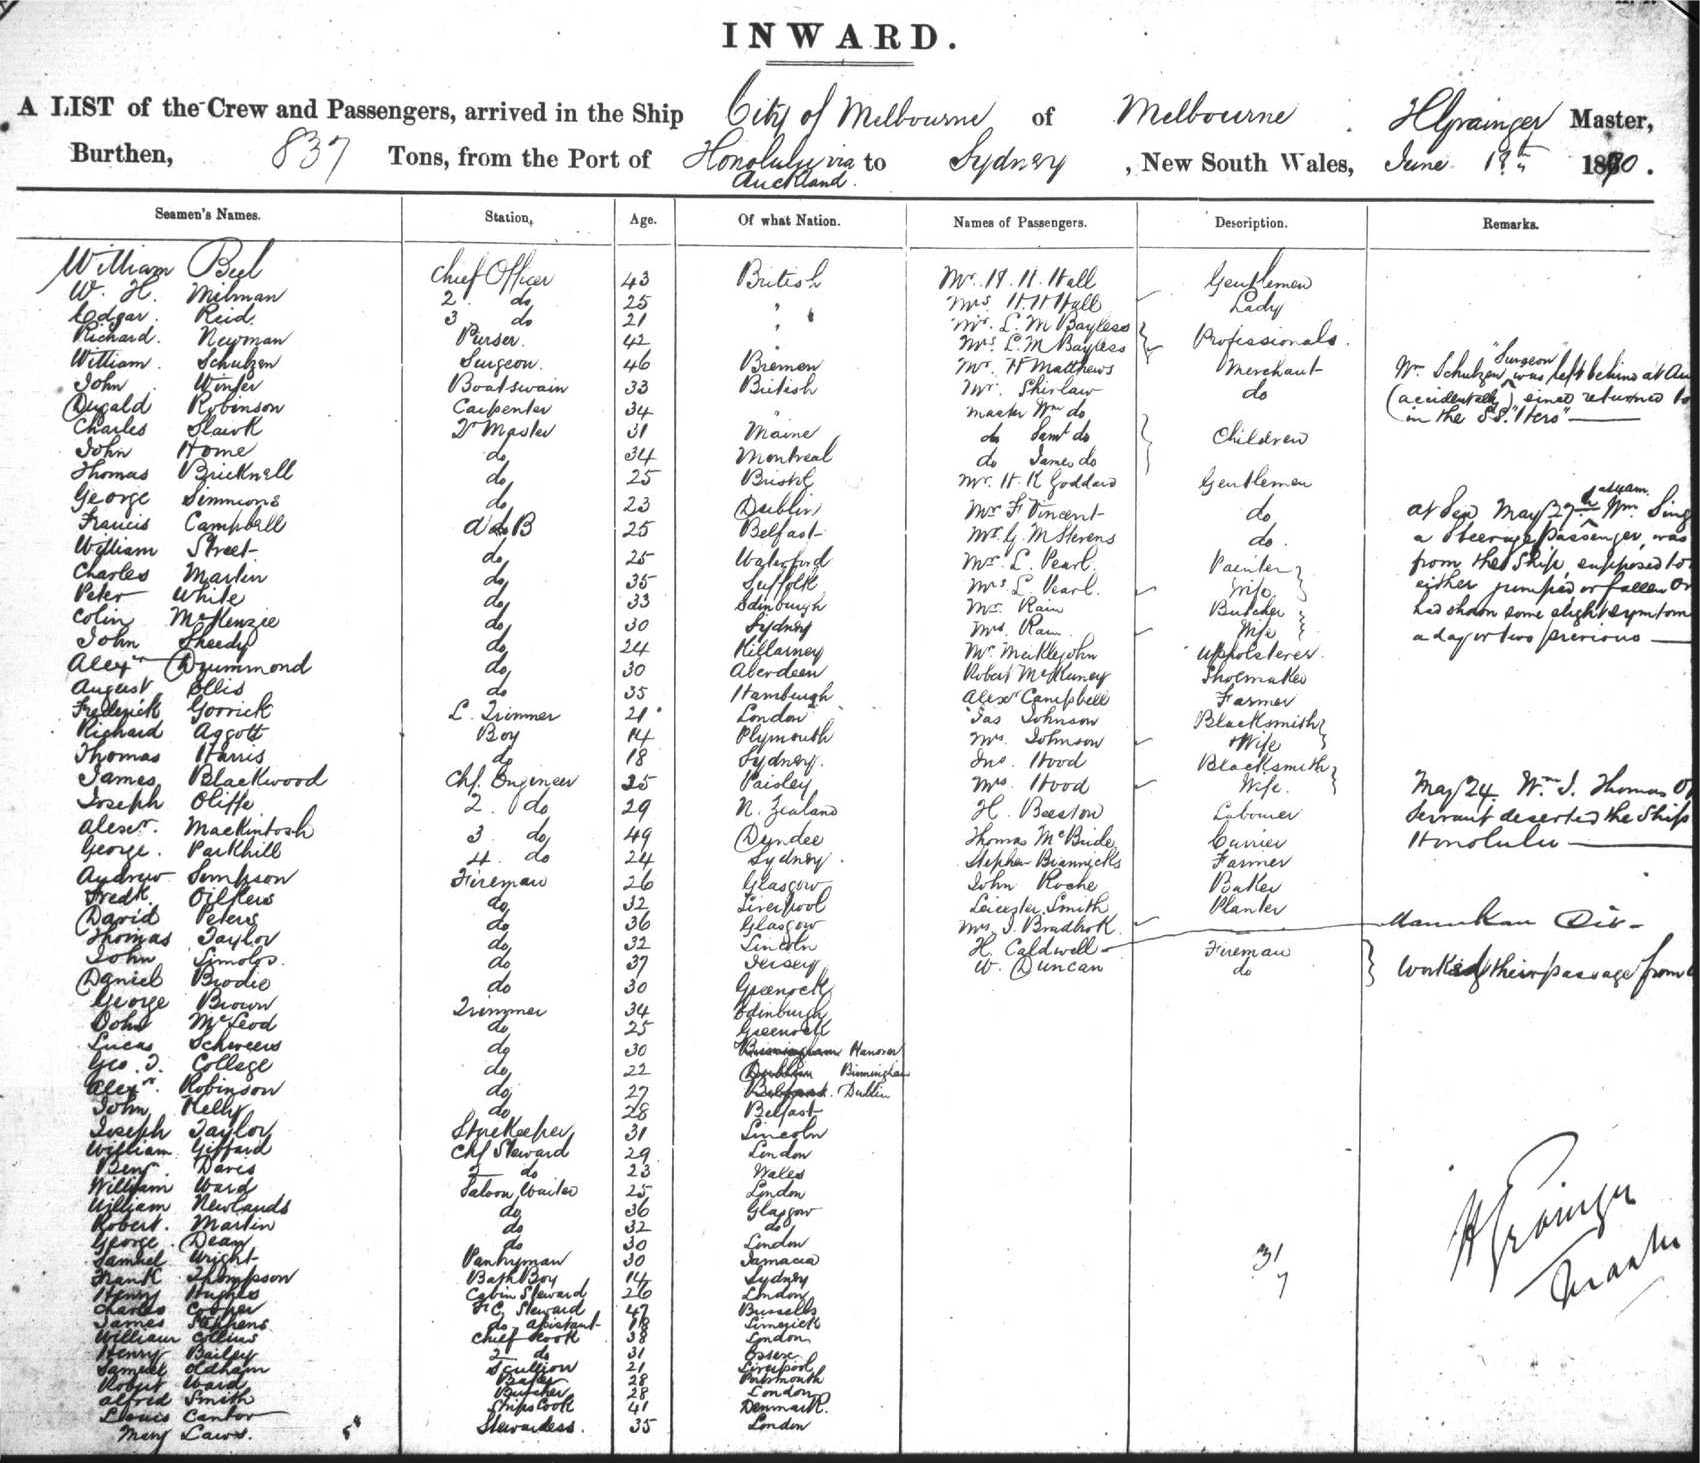 INWARD.
A LIST of the Crew and Passengers, arrived in the Ship City of Melbourne of Melbourne, H Grainger Master,
Burthen, 837 Tons, from the Port of Honolulu via Auckland. to Sydney, New South Wales, June 1870.
Seamen's Names. Station, Age. Of what Nation. Names of Passengers. Description. Remarks.
William Bell Chief Officer 43 British Mr. H. H. Hall Gentlemen
W. H. Milman 2 do 25 " Mrs H H Hall Lady
Edgar Reid. 3 do 21 " Mr. L. M Bayless
Richard. Newman Purser. 42 " Mrs L. M Bayless Professionals.
William. Schulzen Surgeon. 46 Bremen Mr. H Matthews Merchant Wm Schulzen "Surgeon" was left behind at
John Winter Boatswain 33 British Mr. Shirlaw do (accidentally) since returned
Dugald Robinson Carpenter 34 " Master Wm do in the SS. "Hero"
Charles 2r Master 31 Maine do Saml do Children
John Home do 34 Montreal do James do
Thomas Bricknell do 25 Bristol Mr. H. K Goddard Gentlemen
George Simmions do 23 Dublin Mr F Vincent do at Sea May 27th Wm
Francis Campbell A B 25 Belfast Mr G. M Stevens do. a Steerage passenger, was
William Street do 25 Waterford Mr. L. Pearl. Painter from the Ship, supposed to
Charles Martin do 35 Suffolk Mrs L. Pearl. Wife either jumped or fallen
Peter White do 33 Edinburgh Mr. Rain Butcher had shown some slight symtom
Colin McKenzie do 30 Sydney Mrs. Rain Wife a day or two previous
John Sheedy do 24 Killarney Mr Meiklejohn Upholsterer.
Alexr Drummond do 30 Aberdeen Robert McKinney Shoemaker
August Ellis do 35 Hamburgh Alexr Campbell Farmer
Frederick Gorrick L. Trimmer 21 London Jas Johnson Blacksmith
Richard Aggott Boy 14 Plymouth Mrs Johnson Wife
Thomas Harris do 18 Sydney. Jno. Hood Blacksmith
James Blackwood Chf. Engineer 35 Paisley Mrs Hood Wife. May 24 Wm J. Thomas
Joseph Oliffe 2. do 29 N. Zealand H. Beeston Labourer Servant deserted the Ship
Alexr. Mackintosh 3 do 49 Dundee Thomas McBride Currier Honolulu
George. Parkhill 4 do 24 Sydney. Stephen Farmer
Andrew Simpson Fireman 26 Glasgow John Roche Baker
Fredk. Oilkers do 32 Liverpool Leicester Smith Planter
David Peters do 36 Glasgow Mrs J. Bradbrok
Thomas Taylor do 32 Lincoln H. Caldwell Fireman
John do 37 Jersey W. Duncan do Worked their passage from
Daniel Brodie do 30 Greenock
George Brown Trimmer 34 Edinburgh
John McLeod do 25 Greenock
Lucas Schweers do 30 Birmingham Hanover
Geo. T. College do 22 Dublin Birmingham
Alexr. Robinson do 27 Belfast. Dublin
John Kelly do 28 Belfast
Joseph Taylor Storekeeper 31 Lincoln
William Giffard Chf Steward 29 London
Benj. Davis 2 do 23 Wales
William Ward Saloon Waiter 25 London
William Newlands do 36 Glasgow
Robert. Martin do 32 do
George Dean do 30 London
Samuel Wright Pantryman 30 Jamaica 31
Frank Thompson Bath Boy 14 Sydney 7
Henry Hughes Cabin Steward 26 London
Charles Cooper F C Steward 47 Brussels
James Stephens do Assistant 18 Limerick
William Collins Chief Cook 38 London
Henry Bailey 2 do 31 Essex
Samuel Oldham Scullion 21 Liverpool
Robert Ward Baker 28 Portsmouth
Alfred Smith Butcher 28 London
Louis Cantor Ships Cook 41 Denmark.
Mary Laws. Stewardess. 35 London
H Grainger
Master